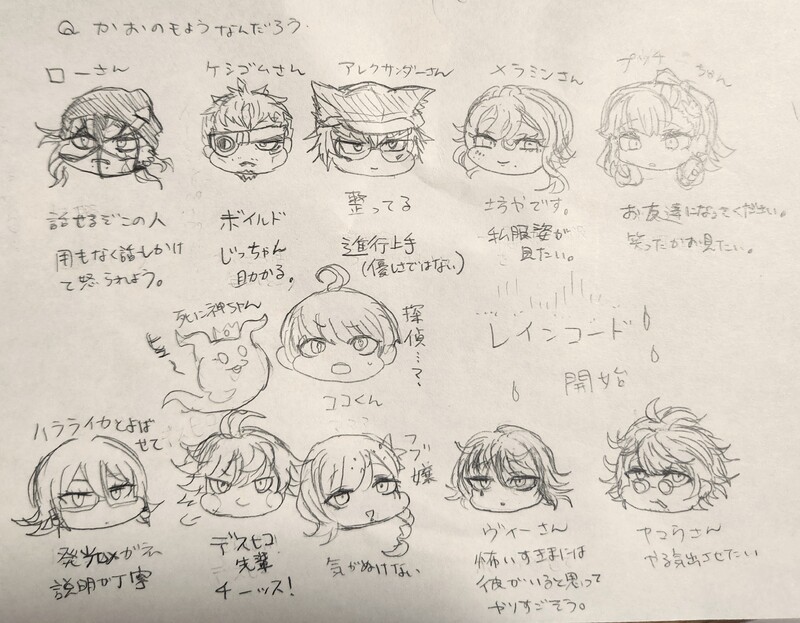 Q かおのもようなんだろう
ローさん
ケシゴムさん
アレクサンダーさん
メラミンさん
プッチちゃん
話せるぞこの人
用もなく話しかけ
て怒られよう。
ボイルド
じっちゃん
助かる。
整ってる
進行上手
(優しさではない)
坊やです。
私服姿が
見たい。
お友達になってください。
笑ったかお見たい。
死に神ちゃん
ココくん
探偵…?
レインコード
開始
ハララライカとよば
せて
発光メガネ
説明が丁寧
デスヒコ
先輩
チーッス!
フブ嬢
気がぬけない
ヴィーさん
怖いすきまには
彼がいると思って
やりすごそう。
ヤコウさん
やる気出させたい